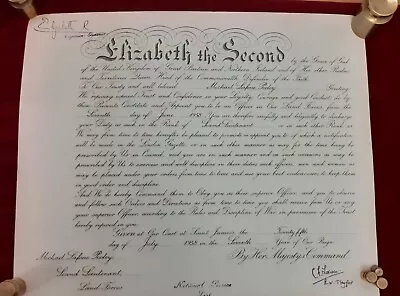 Elizabeth R
Elizabeth the Second by the Grace of God
of the United Kingdom of Great Britain and Northern Ireland and of Her other Realms
and Territories Queen, Head of the Commonwealth, Defender of the Faith.
To Our Trusty and well beloved Michael Greeting
We reposing especial Trust and Confidence in your Loyalty, Courage and good Conduct, do by
these Presents Constitute and Appoint you to be an Officer in Our Land Forces from the
day of June 1958 You are therefore carefully and diligently to discharge
your Duty as such in the Rank of Second Lieutenant or in such other Rank as
We may from time to time hereafter be pleased to promote or appoint you to of which a notification
will be made in the London Gazette, or in such other manner as may for the time being be
prescribed by Us in Council, and you are in such manner and on such occasions as may be
prescribed by Us to exercise and well discipline in their duties such officers, men and women as
may be placed under your orders from time to time and use your best endeavours to keep them
in good order and discipline.
And We do hereby Command them to Obey you as their superior Officer, and you to observe
and follow such Orders and Directions as from time to time you shall receive from Us, or any
your superior Officer, according to the Rules and Discipline of War, in pursuance of the Trust
hereby reposed in you.
Given at Our Court, at Saint James's the Twenty fifth
day of July 1958 in the Seventh Year of Our Reign
By Her Majesty's Command
Michael
Second Lieutenant
Land Forces
National Service
List